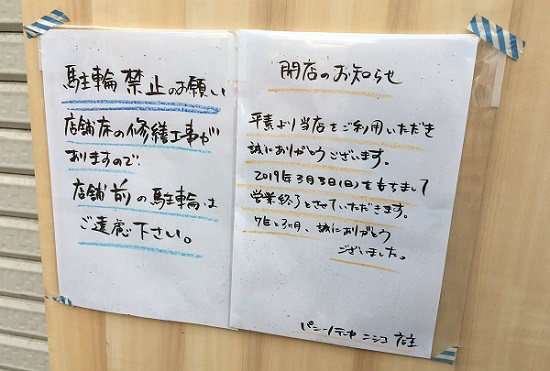 駐輪禁止のお願い
店舗床の修繕工事が
ありますので、
店舗前の駐輪は
ご遠慮下さい。
閉店のお知らせ
平素より当店をご利用いただき
誠にありがとうございます。
2019年3月3日(日)をもちまして
営業終了とさせていただきます。
7年と3ヶ月、誠にありがとう
ございました。
店主